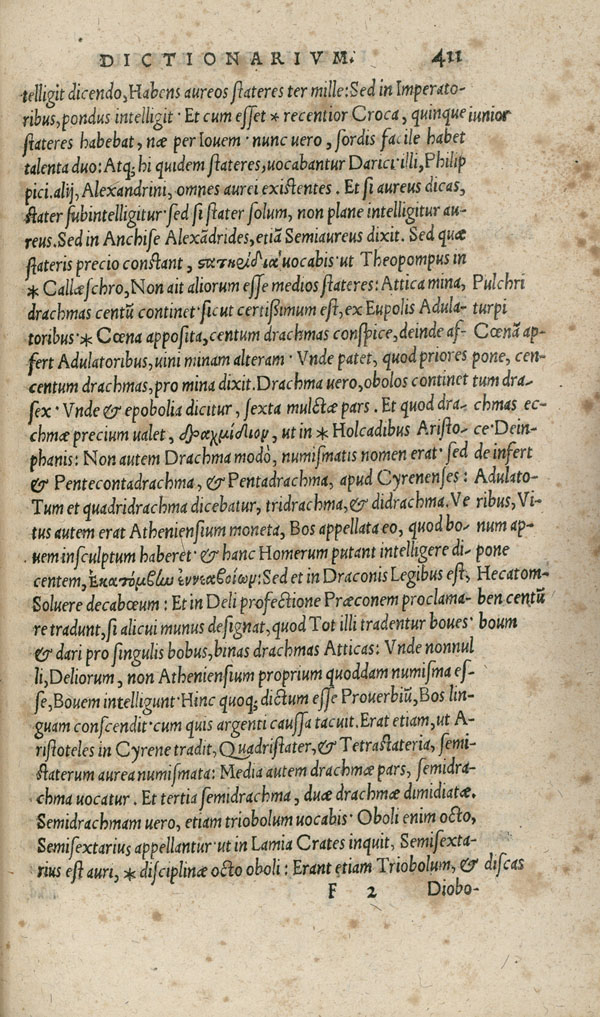 DICTIONARIVM. 411
telligit dicendo, Habens aureos stateres ter mille: Sed in Imperato-
ribus, pondus intelligit · Et cum esset * recentior Croca, quinque iunior
stateres habebat, næ per Iouem · nunc uero, sordis facile habet
talenta duo: Atq; hi quidem stateres, uocabantur Darici illi, Philip
pici. alij, Alexandrini, omnes aurei existentes. Et si aureus dicas,
stater subintelligitur · sed si stater solum, non plane intelligitur au-
reus. Sed in Anchise Alexãdrides, etiã Semiaureus dixit. Sed quæ
stateris precio constant, uocabis · ut Theopompus in
* Callæschro, Non ait aliorum esse medios stateres: Attica mina, Pulchri
drachmas centũ continet · sicut certissimum est, ex Eupolis Adula- turpi
toribus · * Cœna apposita, centum drachmas conspice, deinde af- Cœnã ap-
fert Adulatoribus, uini minam alteram · Vnde patet, quod priores pone, cen-
centum drachmas, pro mina dixit. Drachma uero, obolos continet tum dra-
sex · Vnde & epobolia dicitur, sexta mulctæ pars. Et quod dra- chmas ec-
chmæ precium ualet, δραχμίδιον, ut in * Holcadibus Aristo- ce · Dein-
phanis: Non autem Drachma modò, numismatis nomen erat · sed de infert
& Pentecontadrachma, & Pentadrachma, apud Cyrenenses: Adulato-
Tum et quadridrachma dicebatur, tridrachma, & didrachma. Ve ribus, Vi-
tus autem erat Atheniensium moneta, Bos appellata eo, quod bo- num ap-
uem insculptum haberet · & hanc Homerum putant intelligere di- pone
centem, Ἑκατόμβω ἐννεαβοίων: Sed et in Draconis Legibus est, Hecatom-
Soluere decabœum: Et in Deli profectione Præconem proclama- ben centũ
re tradunt, si alicui munus designat, quod Tot illi tradentur boues · boum
& dari pro singulis bobus, binas drachmas Atticas: Vnde nonnul
li, Deliorum, non Atheniensium proprium quoddam numisma es-
se, Bouem intelligunt · Hinc quoq; dictum esse Prouerbiũ, Bos lin-
guam conscendit · cum quis argenti caussa tacuit. Erat etiam, ut A-
ristoteles in Cyrene tradit, Quadristater, & Tetrastateria, semi-
staterum aurea numismata: Media autem drachmæ pars, semidra-
chma uocatur. Et tertia semidrachma, duæ drachmæ dimidiatæ.
Semidrachmam uero, etiam triobolum uocabis · Oboli enim octo,
Semisextarius appellantur · ut in Lamia Crates inquit, Semisexta-
rius est auri, * disciplinæ octo oboli: Erant etiam Triobolum, & discas
F 2 Diobo-